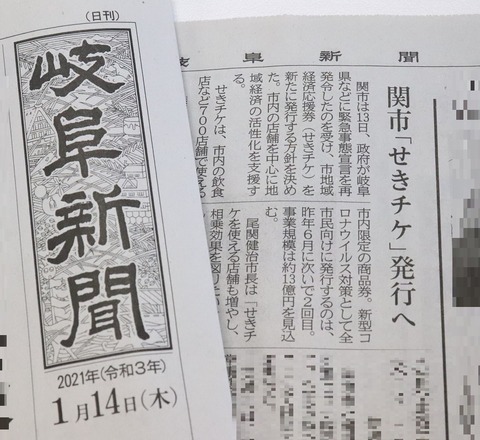 (日刊)
岐阜新聞
2021年(令和3年)
1月14日(木)
岐阜新聞
関市「せきチケ」発行へ
関市は13日、政府が岐阜
県などに緊急事態宣言を再
発令したのを受け、市地域
経済応援券(せきチケ)を
新たに発行する方針を決め
た。市内の店舗を中心に地
域経済の活性化を支援す
る。
せきチケは、市内の飲食
店など700店舗で使える
市内限定の商品券。新型コ
ロナウイルス対策として全
市民向けに発行するのは、
昨年6月に次いで2回目。
事業規模は約13億円を見込
む。
尾関健治市長は「せきチ
ケを使える店舗も増やし、
相乗効果を図りたい